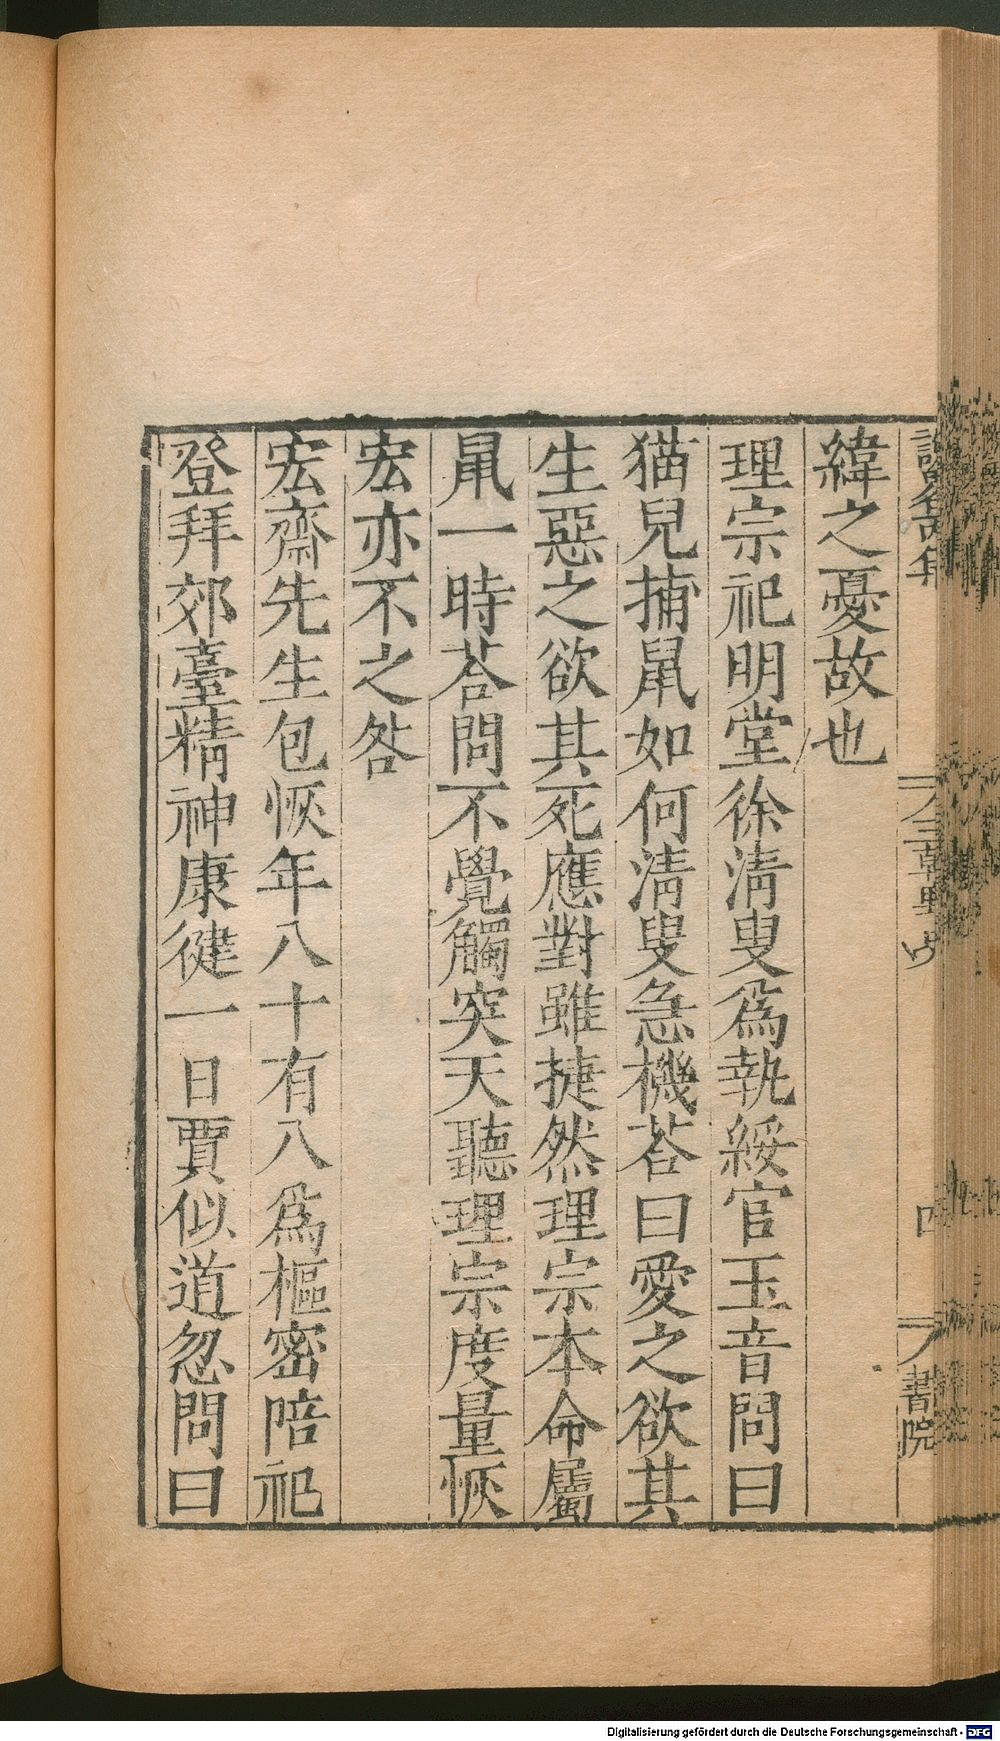 緯之憂故也
理宗祀明堂徐淸叟爲執綏官玉音問曰
猫兒捕鼠如何淸叟急機荅曰愛之欲其
生惡之欲其死應對雖捷然理宗本命屬
鼠一時荅問不覺觸突天聽理宗度量恢
宏亦不之咎
宏齋先生包恢年八十有八爲樞密陪祀
登拜郊臺精神康健一日賈似道忽問曰
三朝野史
四
書院
Digitalisierung gefördert durch die Deutsche Forschungsgemeinschaft - DFG